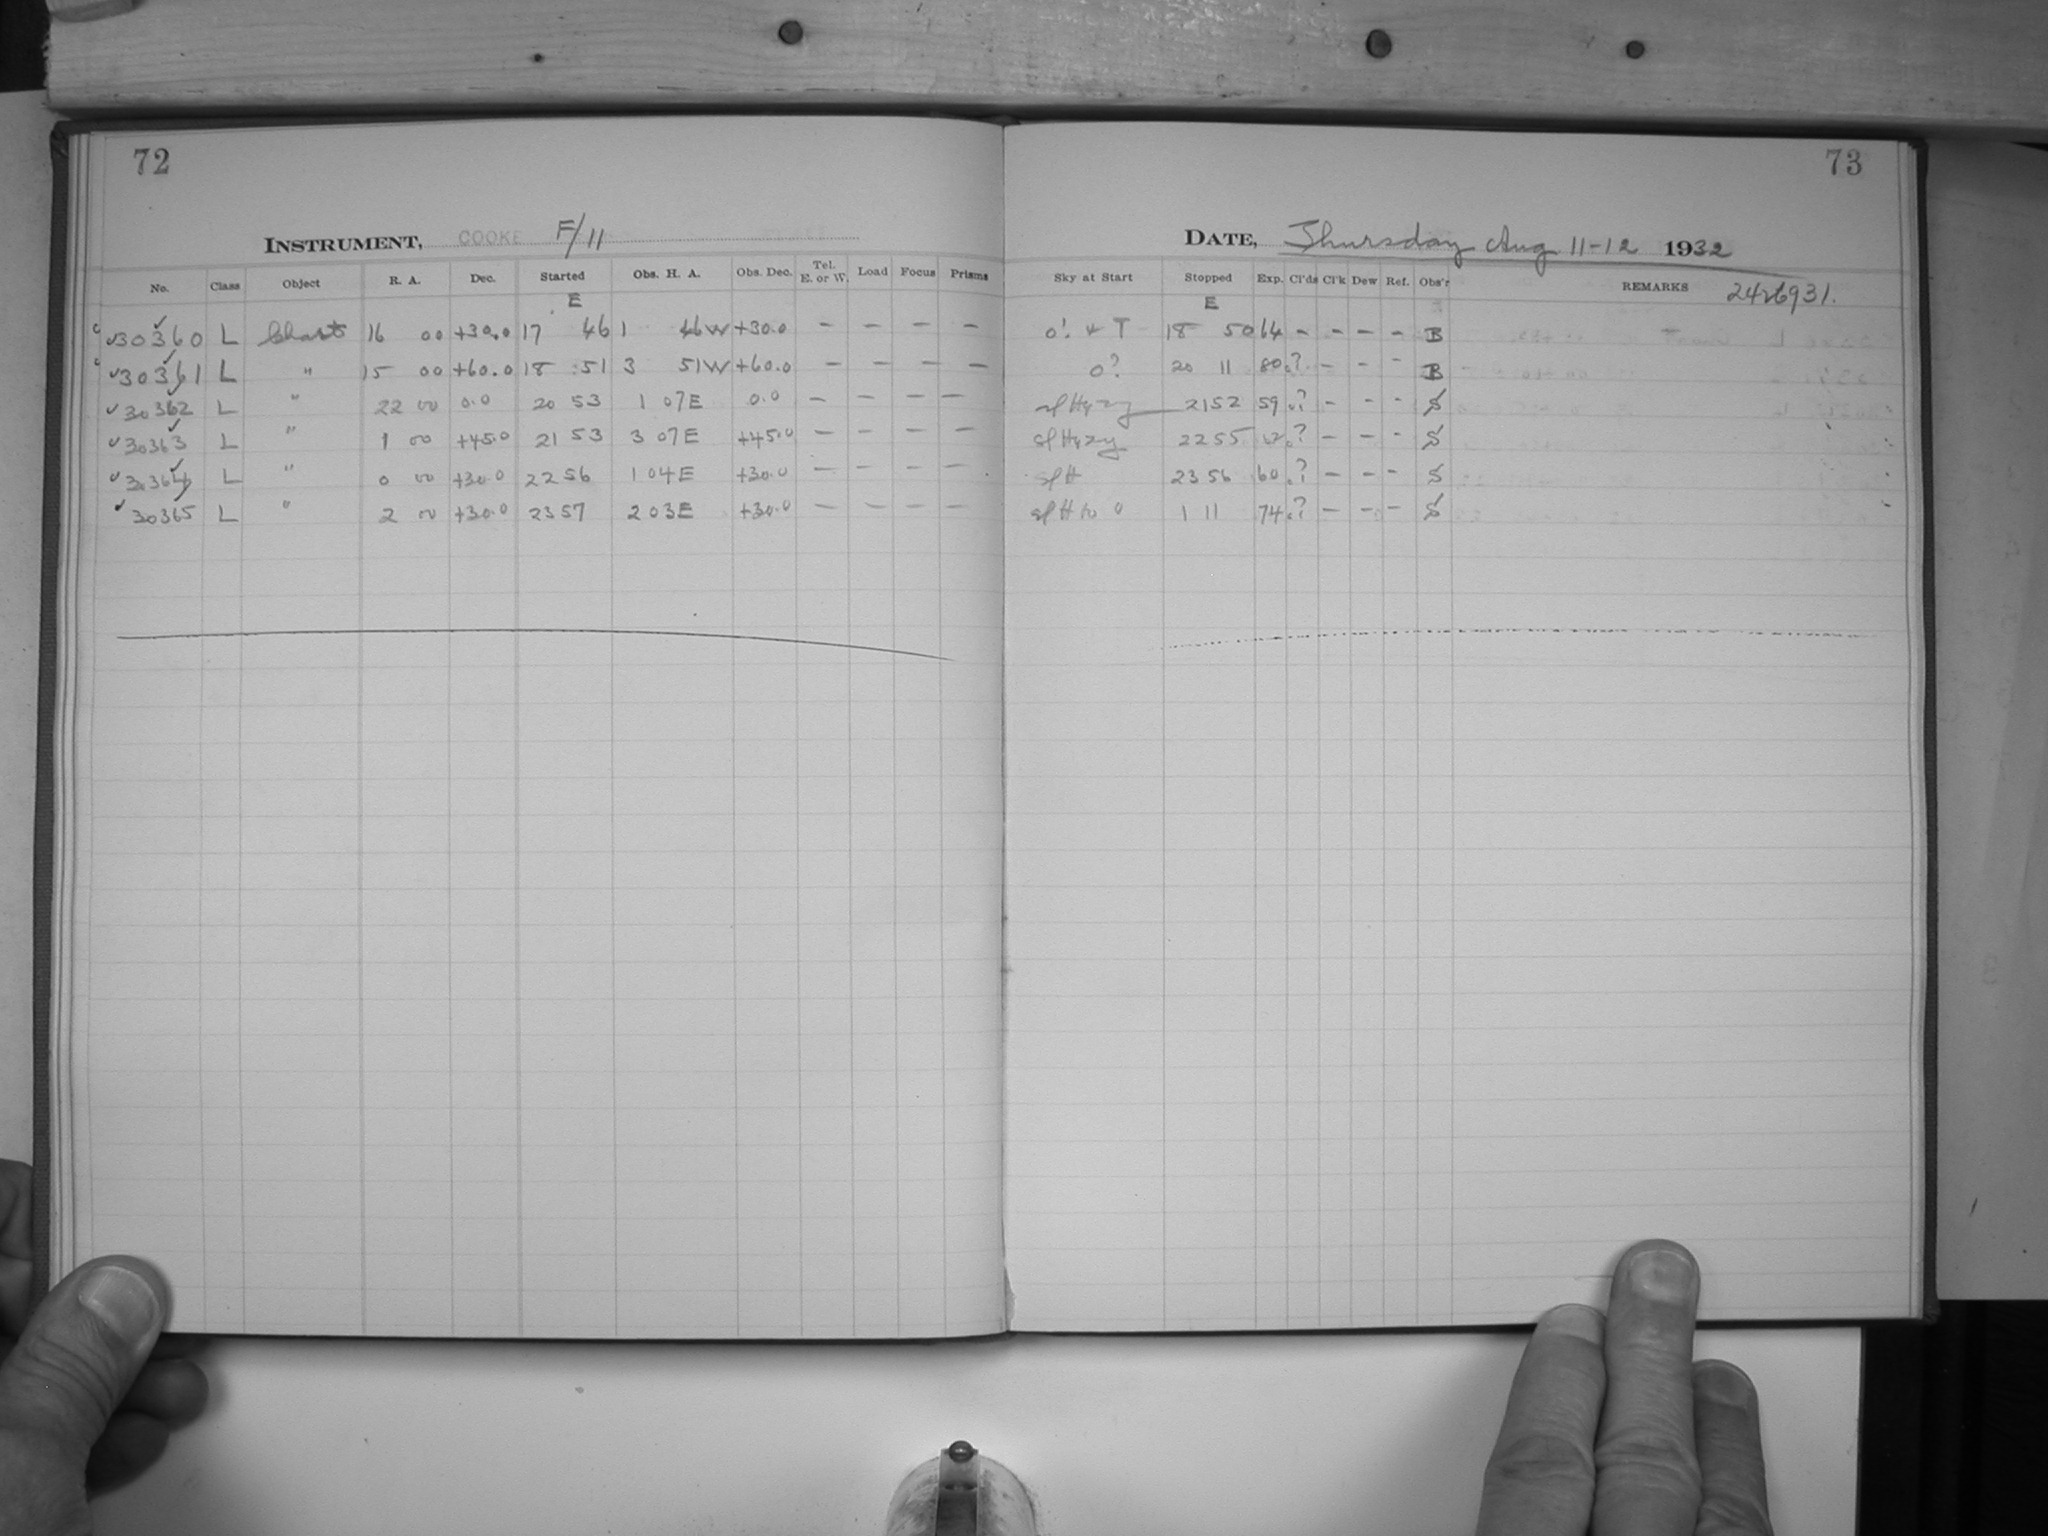 72
INSTRUMENT, COOKE F/11
No. Class Object R. A. Dec. Started Obs. H. A. Obs. Dec. Tel. E. or W. Load Focus Prisms
E
30360 L Chart 16 00 +30.0 17 46 1 46W +30.0 — — — —
30361 L " 15 00 +60.0 18 51 3 51W +60.0 — — — —
30362 L " 22 00 0.0 20 53 1 07E 0.0 — — — —
30363 L " 1 00 +45.0 21 53 3 07E +45.0 — — — —
30364 L " 0 00 +30.0 22 56 1 04E +30.0 — — — —
30365 L " 2 00 +30.0 23 57 2 03E +30.0 — — — —
73
DATE, Thursday Aug 11-12 1932
Sky at Start Stopped Exp. Cl'ds Cl'k Dew Ref. Obs'r REMARKS 2426931.
E
0! + T 18 50 64 — — — — B
0? 20 11 80 .? — — — B
sl Hyzy 21 52 59 .? — — — S
sl Hyzy 22 55 .? — — — S
sl H 23 56 60 .? — — — S
sl H to 0 1 11 74 .? — — — S